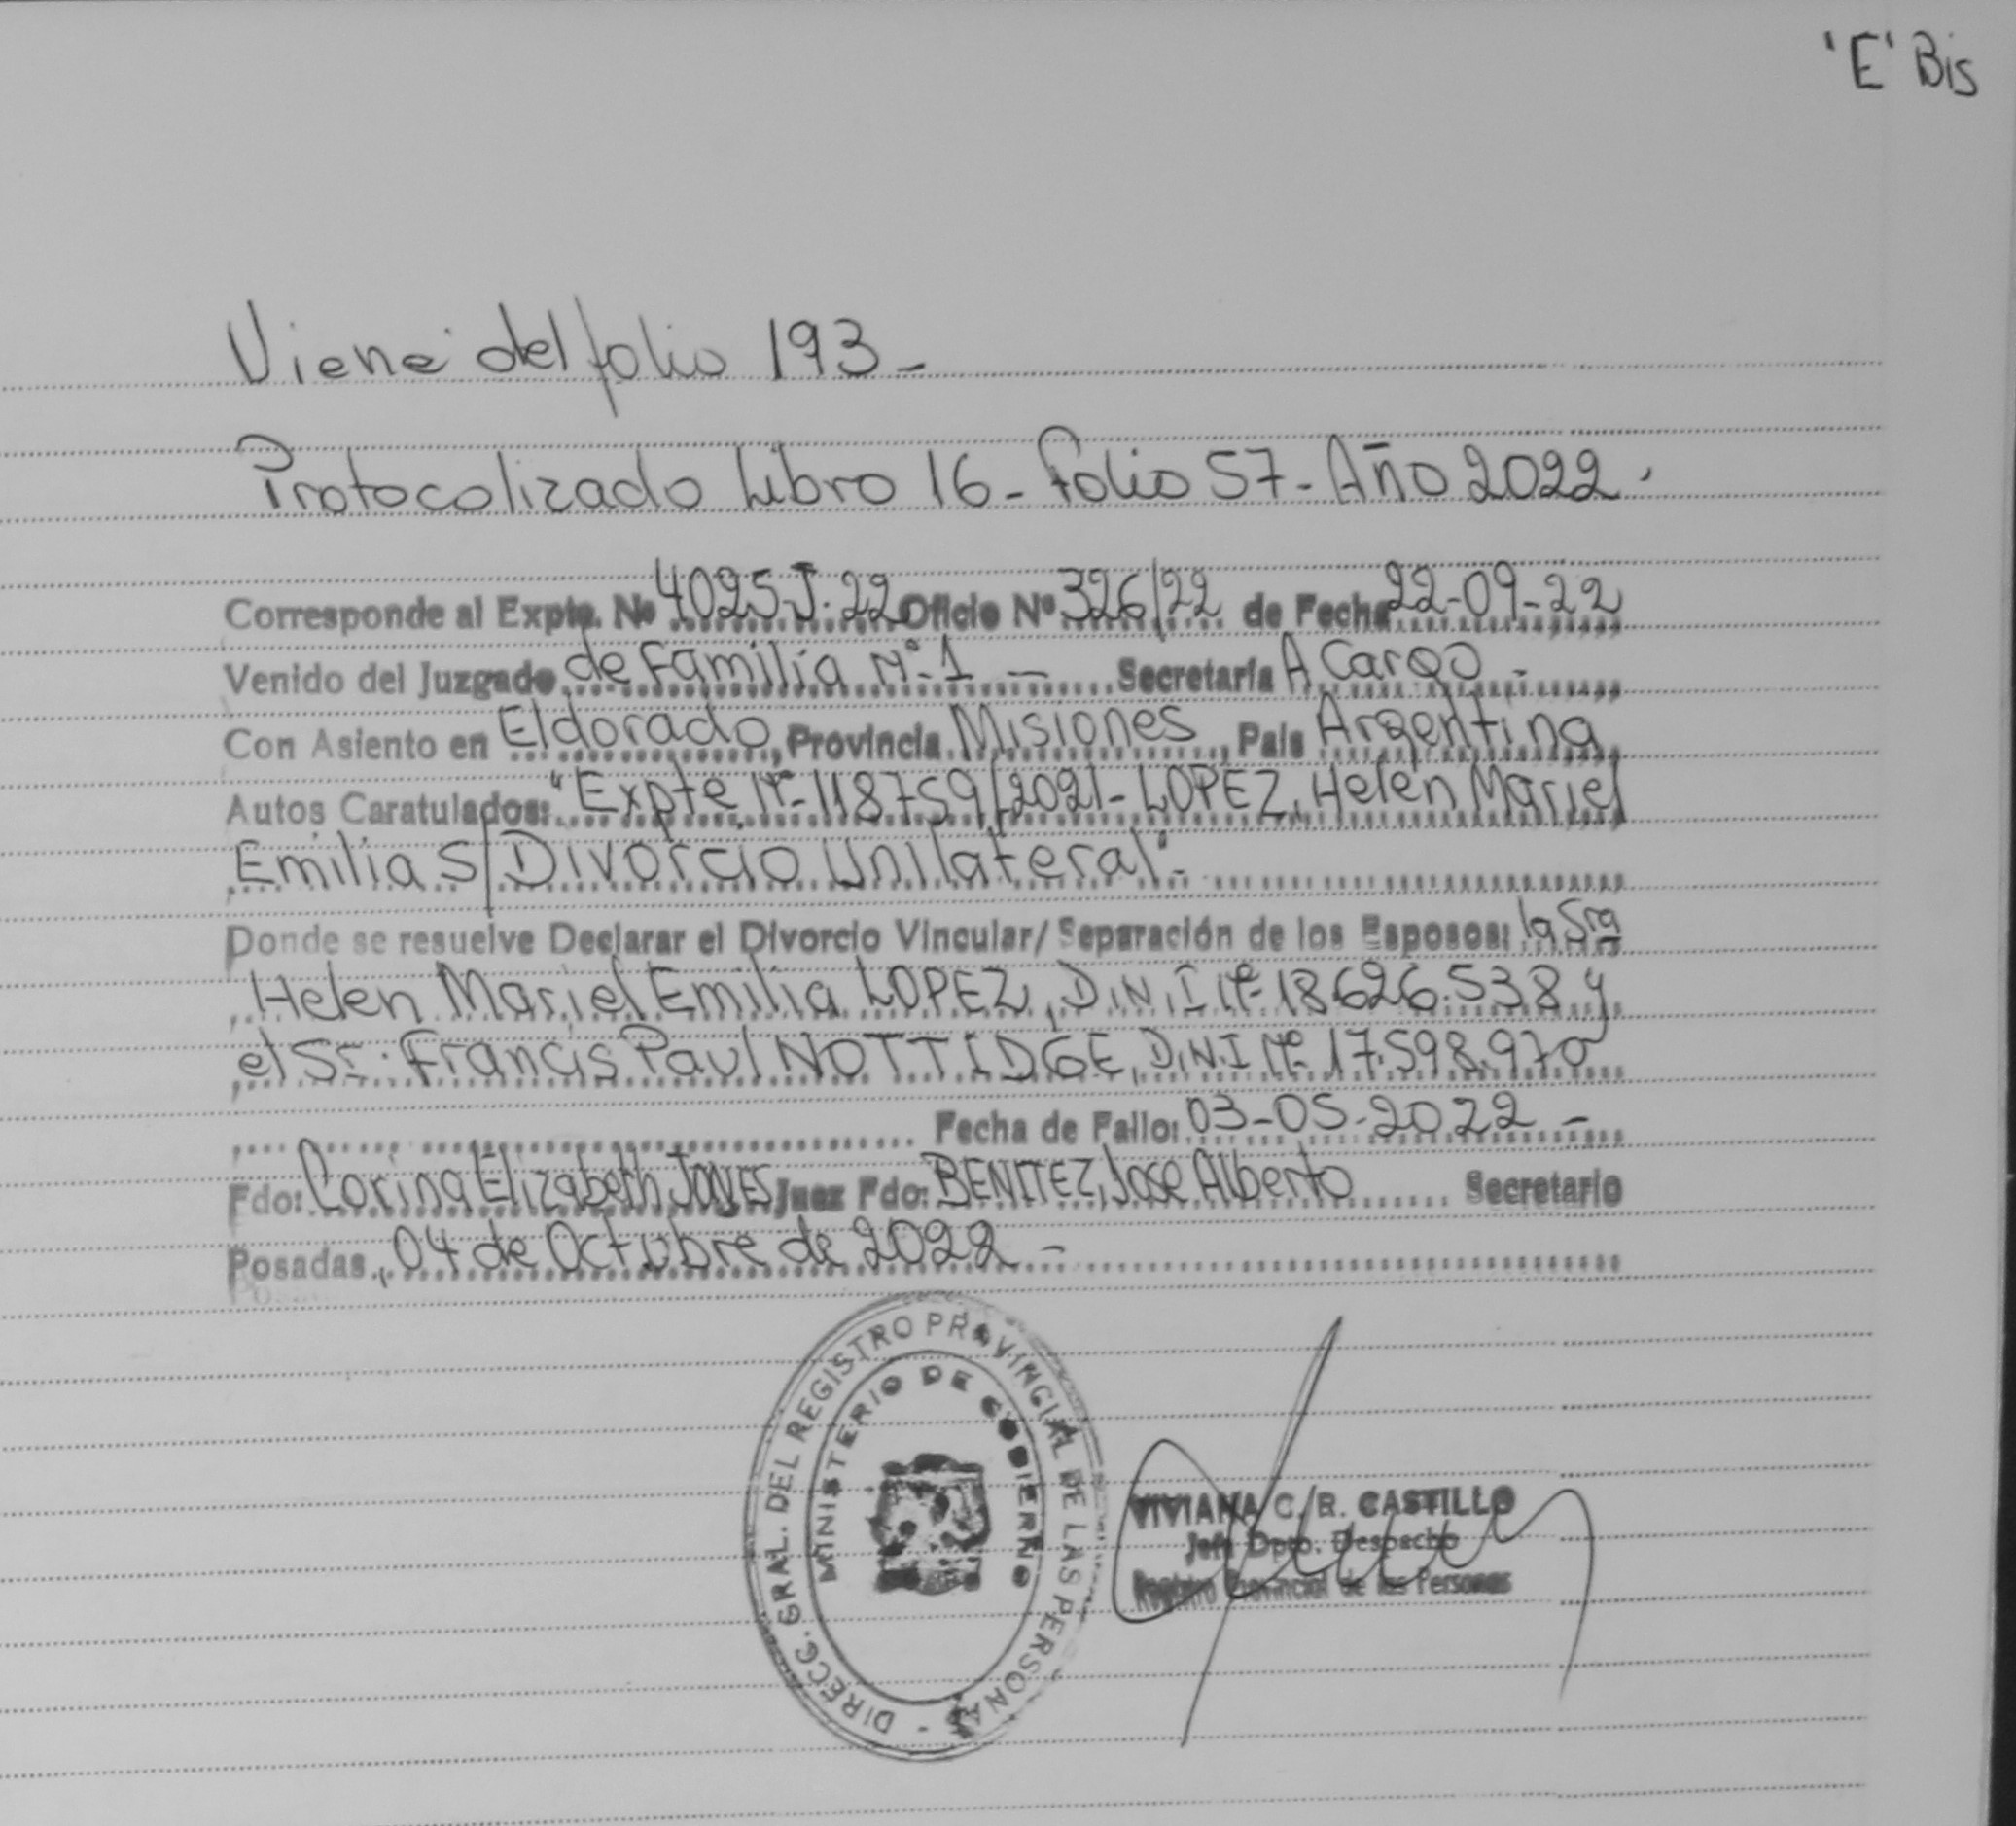 'E' Bis
Viene del folio 193-
Protocolizado Libro 16- folio 57- Año 2022.
Corresponde al Expte. Nº 4025-J-22 Oficio Nº 326/22 de Fecha 22-09-22
Venido del Juzgado de Familia Nº 1 - Secretaría A Cargo -
Con Asiento en Eldorado, Provincia Misiones, País Argentina
Autos Caratulados: "Expte Nº 118759/2021- LOPEZ, Helen Mariel
Emilia S/ Divorcio Unilateral".
Donde se resuelve Declarar el Divorcio Vincular/ Separación de los Esposos: la Sra
Helen Mariel Emilia LOPEZ, D.N.I Nº 18.626.538 y
el Sr. Francis Paul NOTTIDGE, D.N.I Nº 17.598.970
Fecha de Fallo: 03-05-2022 -
Fdo: Corina Elizabeth JONES Juez Fdo: BENITEZ, Jose Alberto Secretario
Posadas, 04 de Octubre de 2022 -
DIRECC. GRAL. DEL REGISTRO PROVINCIAL DE LAS PERSONAS -
MINISTERIO DE GOBIERNO
VIVIANA C. R. CASTILLO
Jefa Dpto. Despacho
Registro Provincial de las Personas